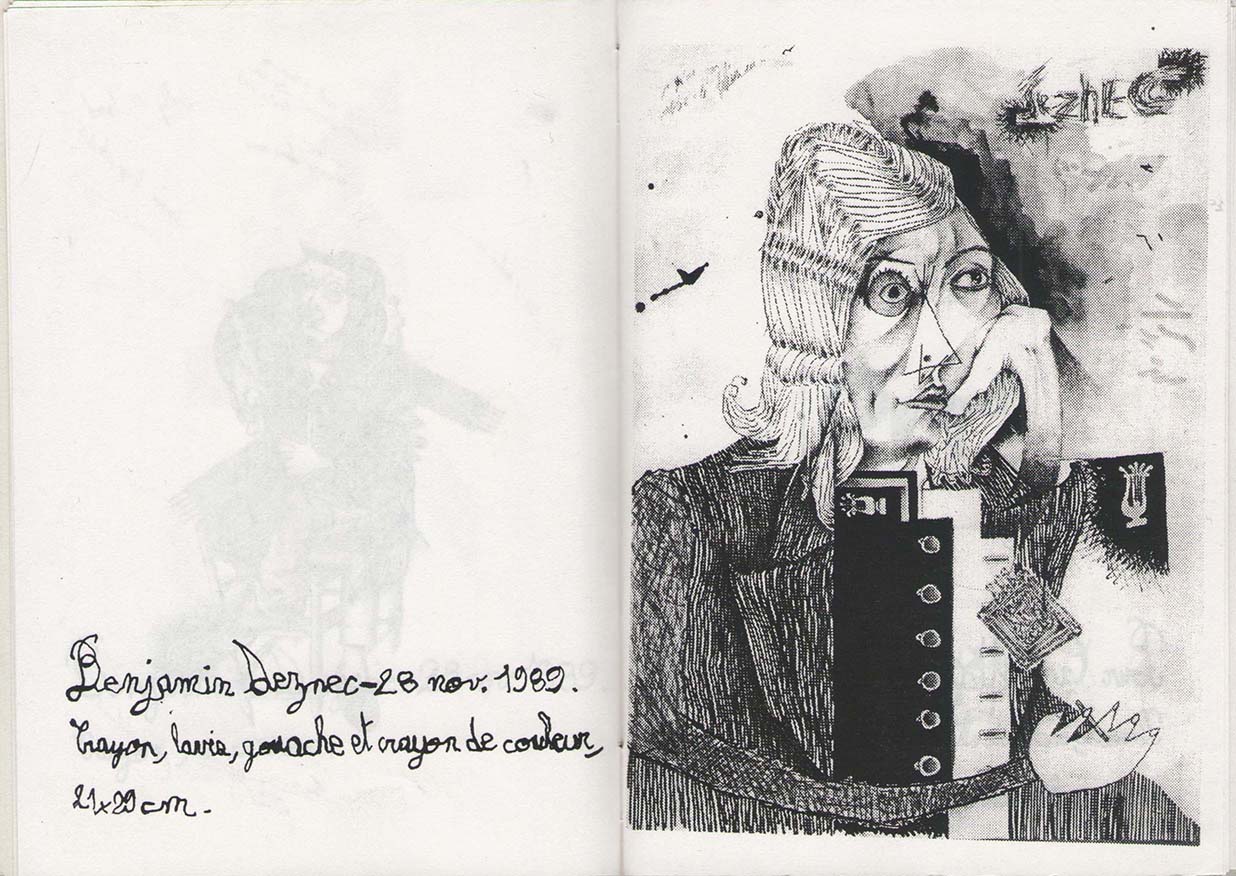 Benjamin Deznec-28 nov. 1989.
Crayon, lavis, gouache et crayon de couleur,
21x29 cm.